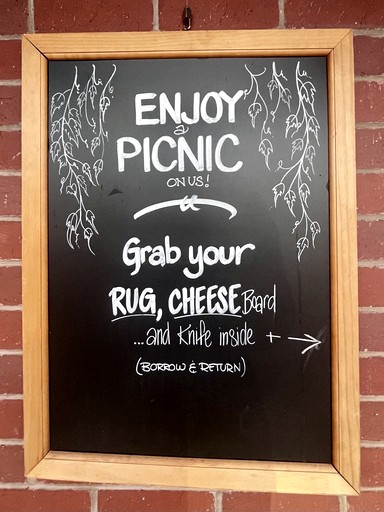 ENJOY
a
PICNIC
ON US!
Grab your
RUG, CHEESE Board
...and Knife inside + →
(BORROW & RETURN)